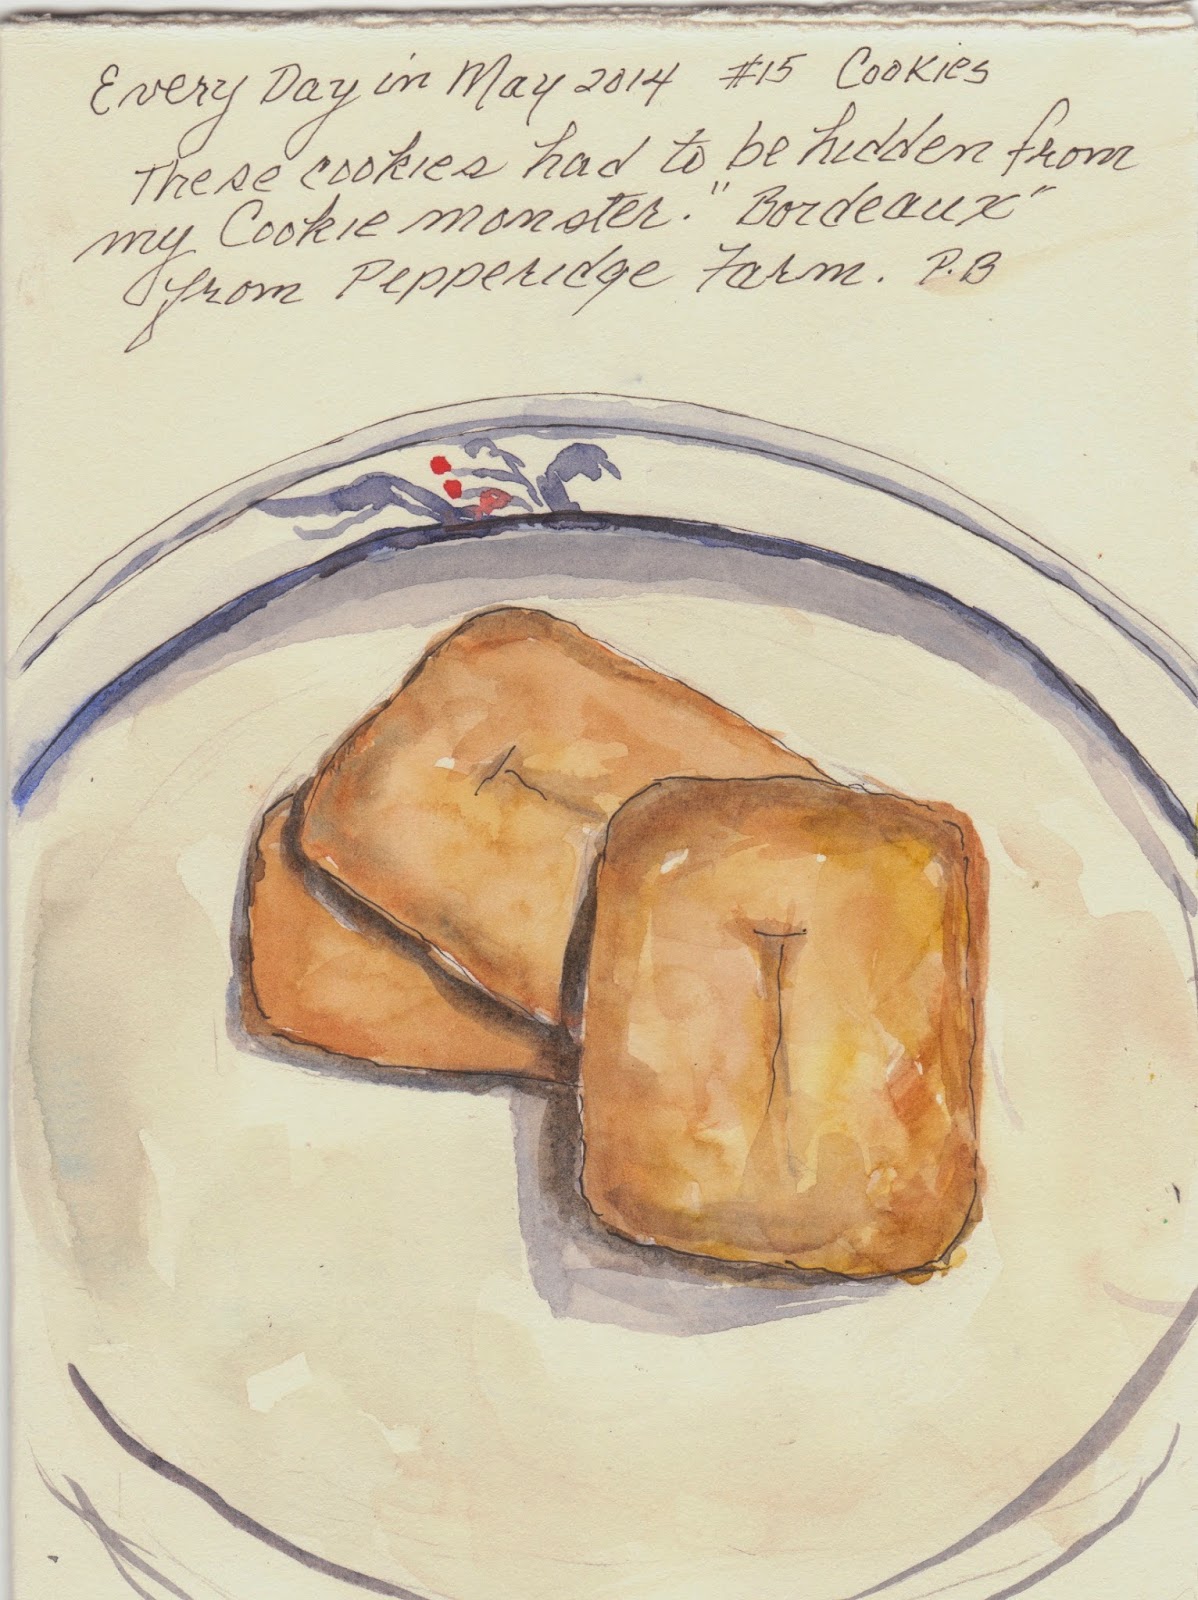 Every Day in May 2014 #15 Cookies
These cookies had to be hidden from
my Cookie monster. "Bordeaux"
from Pepperidge Farm. P.B